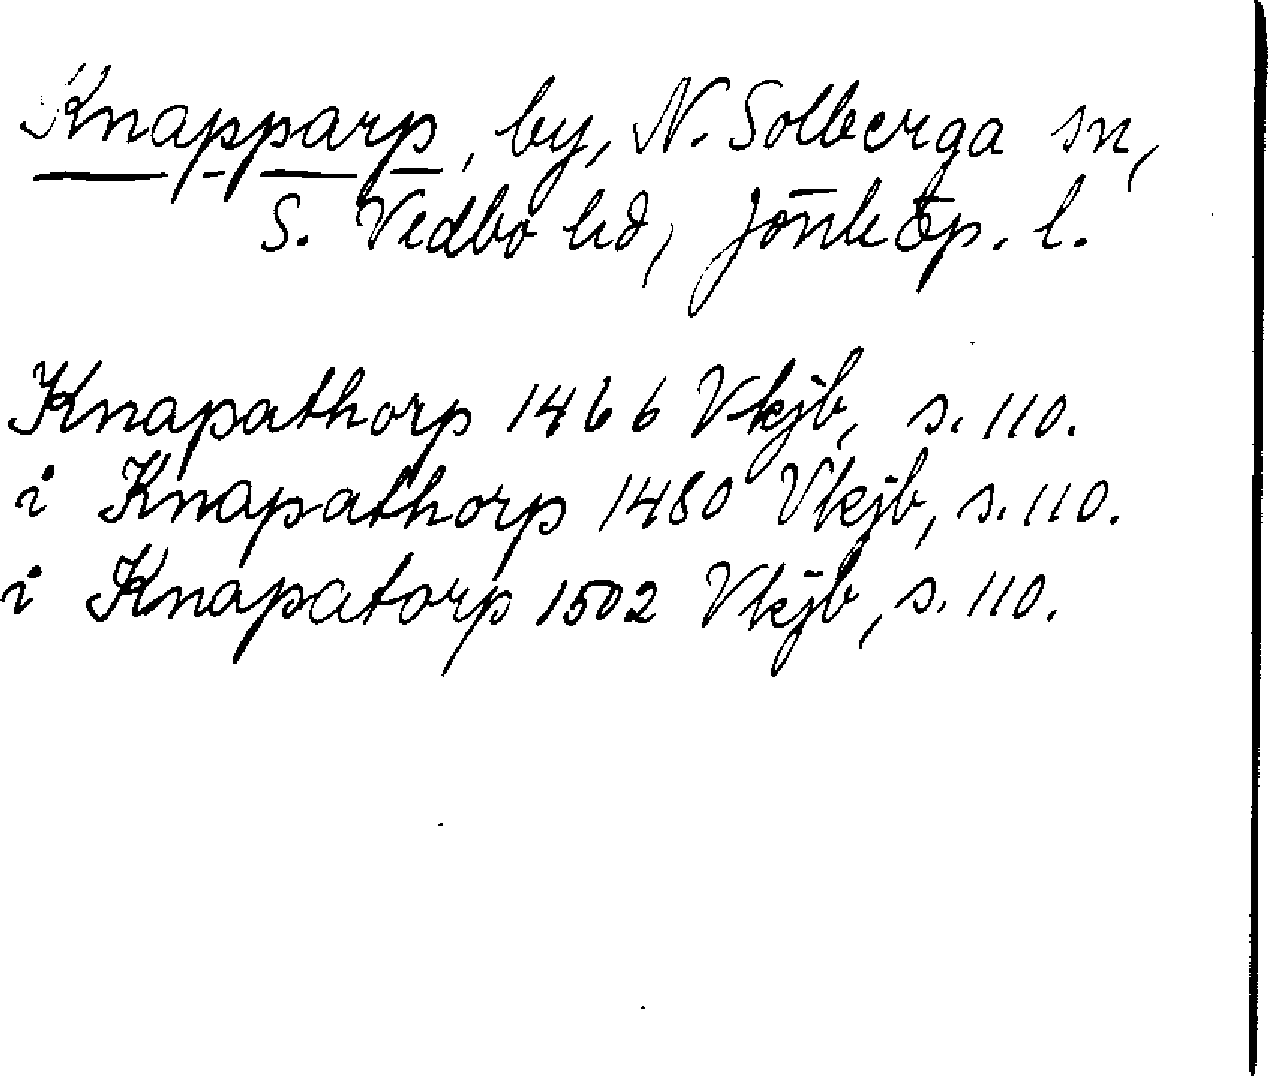 Knapparp, by, N. Solberga sn,
S. Vedbo hd, Jönköp. l.
Knapathorp 1466 Vkjb, s. 110.
i Knapathorp 1480 Vkjb, s. 110.
i Knapatorp 1502 Vkjb, s. 110.